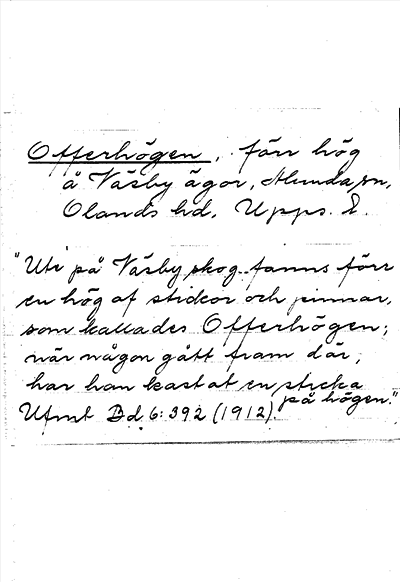 Offerhögen, förr hög
å Väsby ägor, Alunda sn,
Olands hd, Upps. l.
"Ute på Väsby skog fanns förr
en hög af stickor och pinnar,
som kallades Offerhögen;
när någon gått fram där,
har han kastat en sticka
på högen."
Ufmt Bd 6:392 (1912).